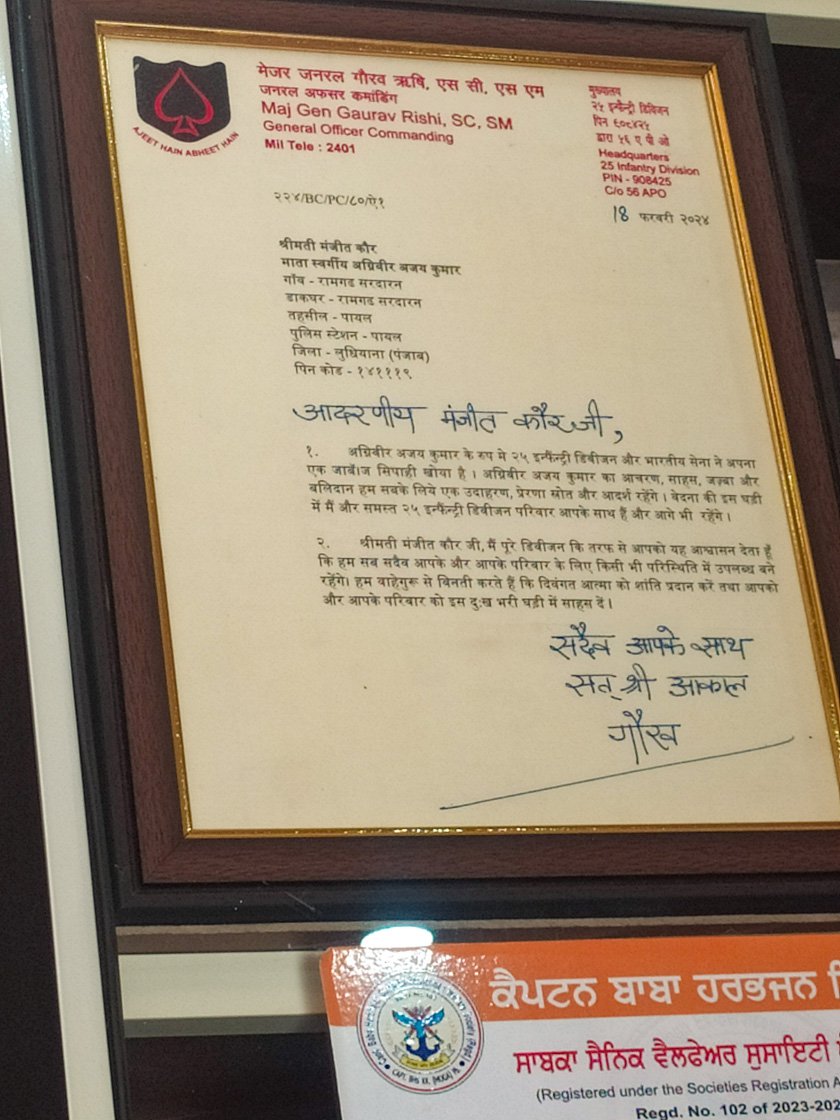 AJEET HAIN ABHEET HAIN
मेजर जनरल गौरव ऋषि, एस सी, एस एम
जनरल अफसर कमांडिंग
Maj Gen Gaurav Rishi, SC, SM
General Officer Commanding
Mil Tele : 2401
मुख्यालय
२५ इन्फैन्ट्री डिविजन
पिन ९०८४२५
द्वारा ५६ ए पी ओ
Headquarters
25 Infantry Division
PIN - 908425
C/o 56 APO
२२४/BC/PC/८०/ऐ१
18 फरवरी २०२४
श्रीमती मंजीत कौर
माता स्वर्गीय अग्निवीर अजय कुमार
गाँव - रामगड सरदारन
डाकघर - रामगड सरदारन
तहसील - पायल
पुलिस स्टेशन - पायल
जिला - लुधियाना (पंजाब)
पिन कोड - १४१११९
आदरणीय मंजीत कौर जी,
१. अग्निवीर अजय कुमार के रुप मे २५ इन्फैंन्ट्री डिवीजन और भारतीय सेना ने अपना
एक जाबॅाज सिपाही खोया है । अग्निवीर अजय कुमार का आचरण, साहस, जज़्बा और
बलिदान हम सबके लिये एक उदाहरण, प्रेरणा स्रोत और आदर्श रहेंगे । वेदना की इस घड़ी
में मैं और समस्त २५ इन्फैंन्ट्री डिवीजन परिवार आपके साथ हैं और आगे भी रहेंगे ।
२. श्रीमती मंजीत कौर जी, मैं पूरे डिवीजन कि तरफ से आपको यह आश्वासन देता हूँ
कि हम सब सदैव आपके और आपके परिवार के लिए किसी भी परिस्थिति में उपलब्ध बने
रहेंगे। हम वाहेगुरू से बिनती करते हैं कि दिवंगत आत्मा को शांति प्रदान करें तथा आपको
और आपके परिवार को इस दुःख भरी घड़ी में साहस दें ।
सदैव आपके साथ
सत् श्री आकाल
गौरव
ਕੈਪਟਨ ਬਾਬਾ ਹਰਭਜਨ
ਸਾਬਕਾ ਸੈਨਿਕ ਵੈਲਫੇਅਰ ਸੁਸਾਇਟੀ
(Registered under the Societies Registration A
Regd. No. 102 of 2023-202